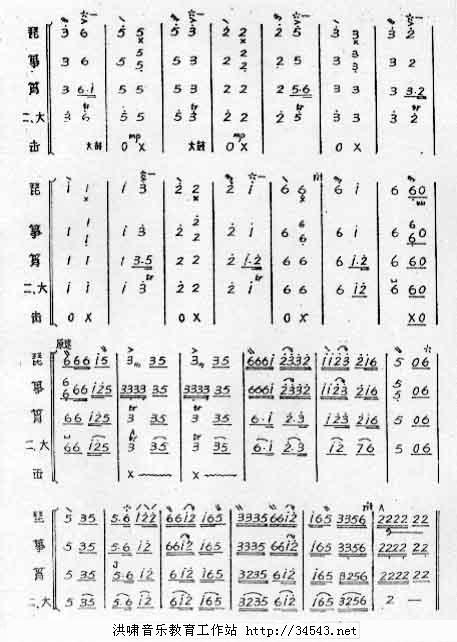 琵 3 6 5 5 5 3 2 2 2 5 3 3 3 2
筝 3 6 5 5 5 3 2 2 2 5 3 3 3 2
筲 3 6·1 5 5 5 3 2 2 2 5·6 3 3 3 3·2
二、大 3 6 5 5 5 3 2 2 2 5 3 3 3 2
击 大鼓 0 X mp 大鼓 0 X mp 0 X
琵 1 1 1 3 2 2 2 1 6 6 6 1 6 60
筝 1 1 1 3 2 2 2 1 6 6 6 1 6 60
筲 1 1 1 3·5 2 2 2 1·2 6 6 6 1·2 6 60
二、大 1 1 1 3 2 2 2 1 6 6 6 12 6 60
击 0 X 0 X 0 X X0
原速
琵 666 15 3 35 3 35 6661 2332 1123 216 5 06
筝 666 125 3333 35 3333 35 6661 2332 1123 216 5 06
筲 66 125 3 35 3 35 6·1 2·3 123 216 5 06
二、大 66 125 3 35 3 35 6·1 2·3 12 76 5 06
击 X X
琵 5 35 5·6 122 6612 165 3335 6612 165 3356 2222 22
筝 5 35 5·6 12 6612 165 3335 6612 165 3356 2222 22
筲 5 35 5·6 12 612 165 3235 612 165 3256 2222 22
二、大 5 35 5·6 12 612 165 3235 612 165 3256 2 —
洪啸音乐教育工作站 http://34543.net